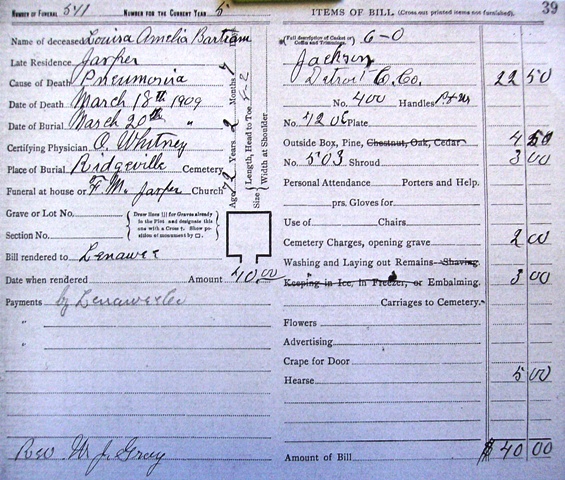 NUMBER OF FUNERAL 541 NUMBER FOR THE CURRENT YEAR 5
Name of deceased Louisa Amelia Bartram
Late Residence Jasper
Cause of Death Pneumonia
Date of Death March 18th 1909
Date of Burial March 20th "
Certifying Physician O. Whitney
Place of Burial Ridgeville Cemetery
Funeral at house or F. M. Jasper Church
Age Years Months
Size Length, Head to Toe 5-2
Width at Shoulder
Grave or Lot No.
Section No.
Draw lines for Graves already in the Plot and designate this one with a Cross †. Show position of monument by □.
Bill rendered to Lenawee
Date when rendered Amount 40.00
Payments by Lenawee
"
"
Rev W. J. Gray
ITEMS OF BILL (Cross out printed items not furnished). 39
(Full description of Casket or Coffin and Trimmings) 6-0
Jackson
Detroit C. Co. 22 50
No. 400 Handles
No. 4206 Plate
Outside Box, Pine, Chestnut, Oak, Cedar 4 50
No. 503 Shroud 3 00
Personal Attendance Porters and Help.
prs. Gloves for
Use of Chairs
Cemetery Charges, opening grave 2 00
Washing and Laying out Remains Shaving
Keeping in Ice, in Freezer, or Embalming. 3 00
Carriages to Cemetery.
Flowers
Advertising
Crape for Door
Hearse 5 00
Amount of Bill $ 40 00